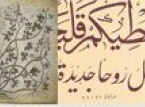 طيكم قلبا
ل روحا جديدة